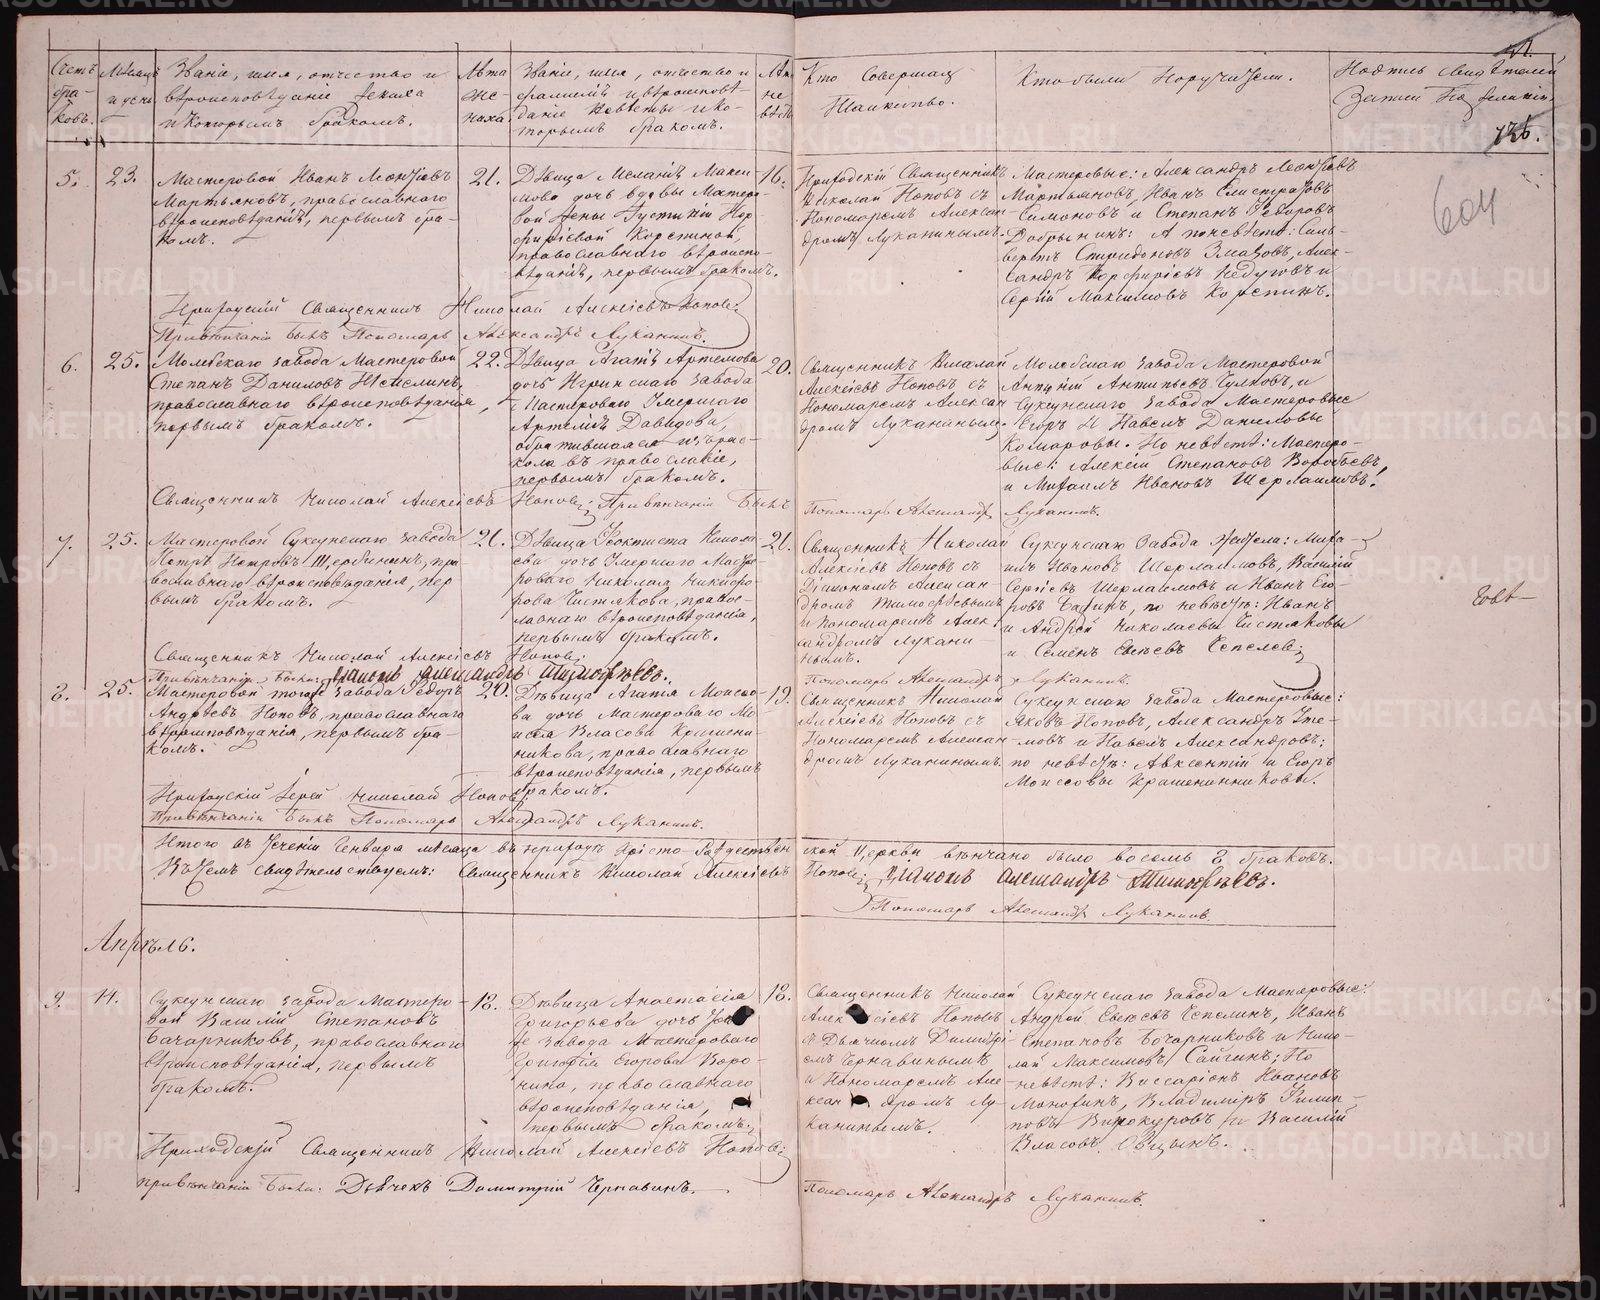 Счетъ бра- ковъ.
Мѣсяцъ и день
Званіе, имя, отчество и
вѣроисповѣданіе жениха
и которымъ бракомъ.
Лѣта же- ниха.
Званіе, имя, отчество и
фамилія и вѣроисповѣ-
даніе невѣсты и ко-
торымъ бракомъ.
Лѣ- не- вѣст
Кто совершалъ
Таинство.
Кто были поручители.
Подпись свидѣтелей
записи по желанію.
136.
604
5.
23.
Мастеровой Иванъ Леонтіевъ
Мартьяновъ, православнаго
вѣроисповѣданія, первымъ бра-
комъ.
21.
Дѣвица Меланія Макси-
мова дочь вдовы Мастеро-
вой жены Устиніи Пор-
фиріевой Корепиной,
православнаго вѣроиспо-
вѣданія, первымъ бракомъ.
16.
Приходскій Священникъ
Николай Поповъ съ
Пономаремъ Алексан-
дромъ Луканинымъ.
Мастеровые: Александръ Леонтіевъ
Мартьяновъ, Иванъ Елистратовъ
Симоновъ и Степанъ Федоровъ
Добрынинъ: А по невѣсте: Силь-
верстъ Спиридоновъ Змазовъ, Алек-
сандръ Порфиріевъ Недуговъ и
Сергій Максимовъ Корепинъ.
Приходскій Священникъ Николай Алексіевъ Поповъ;
При вѣнчаніи былъ Пономарь Александръ Луканинъ.
6.
25.
Молебскаго завода Мастеровой
Степанъ Даниловъ Кисилинъ,
православнаго вѣроисповѣданія,
первымъ бракомъ.
22.
Дѣвица Агапія Артемова
дочь Иргинскаго завода
Мастероваго Умершаго
Артемія Давыдова,
обратившаяся изъ рас-
кола въ православіе,
первымъ бракомъ.
20.
Священникъ Николай
Алексіевъ Поповъ съ
Пономаремъ Алексан
дромъ Луканинымъ
Молебскаго завода Мастеровой
Антоній Антипьевъ Чулковъ, и
Суксунскаго завода Мастеровые
Егоръ и Павелъ Даниловы
Комаровы. По невѣсте: Мастеро-
вые: Алексій Степановъ Воробьевъ,
и Михаилъ Ивановъ Шерлаимовъ.
Священникъ Николай Алексіевъ Поповъ; При вѣнчаніи былъ Пономарь Александръ Луканинъ.
7.
25.
Мастеровой Суксунскаго завода
Петръ Петровъ Щербининъ, пра
вославнаго вѣроисповѣданія, пер
вымъ бракомъ.
21.
Дѣвица Феоктиста Никола
ева дочь Умершаго Масте-
роваго Николая Никифо-
рова Чистякова, правос-
лавнаго вѣроисповѣданія,
первымъ бракомъ.
21.
Священникъ Николай
Алексіевъ Поповъ съ
Діакономъ Алексан
дромъ Тимофѣевымъ
и Пономаремъ Алек-
сандромъ Лукани-
нымъ.
Суксунскаго Завода Жители: Миха-
илъ Ивановъ Шерлаимовъ, Василій
Сергіевъ Шерлаимовъ и Иванъ Его-
ровъ, по невѣсте: Иванъ
и Андрей Николаевы Чистяковы
и Семенъ Евсѣевъ Чепелевъ;
Священникъ Николай Алексіевъ Поповъ;
При вѣнчаніи были: Діаконъ Александръ Тимофѣевъ.
Пономарь Александръ Луканинъ.
8.
25.
Мастеровой того же завода Федоръ
Андреевъ Поповъ, православнаго
вѣроисповѣданія, первымъ бра-
комъ.
20.
Дѣвица Агапія Моисео-
ва дочь Мастероваго Мо
исея Власова Крашени-
никова, православнаго
вѣроисповѣданія, первымъ
бракомъ.
19.
Священникъ Николай
Алексіевъ Поповъ съ
Пономаремъ Алексан-
дромъ Луканинымъ
Суксунскаго Завода Мастеровые:
Яковъ Поповъ, Александръ Уте-
мовъ и Павелъ Александровъ;
по невѣсте: Авксентій и Егоръ
Моисеовы Крашенинниковы.
Приходскій Іерей Николай Поповъ;
При вѣнчаніи былъ Пономарь Александръ Луканинъ.
Итого въ теченіи Генваря мѣсяца въ приходѣ Христо-Рождественской Церкви вѣнчано было восемь 8 браковъ.
Въ чемъ свидѣтельствуемъ: Священникъ Николай Алексіевъ Поповъ; Діаконъ Александръ Тимофѣевъ.
Пономарь Александръ Луканинъ.
Апрѣль.
9.
14.
Суксунскаго завода Мастеро-
вой Василій Степановъ
Бачарниковъ, православнаго
вѣроисповѣданія, первымъ
бракомъ.
18.
Дѣвица Анастасія
Григорьева дочь
же завода Мастероваго
Григорія Егорова Воро-
нина, православнаго
вѣроисповѣданія,
первымъ бракомъ.
18.
Священникъ Николай
Алексіевъ Поповъ
съ Дьячкомъ Димитрі-
емъ Чернавинымъ
и Пономаремъ Але
ксандромъ Лу-
канинымъ.
Суксунскаго Завода Мастеровые:
Андрей Евсѣевъ Чепелинъ, Иванъ
Степановъ Бочарниковъ и Нико-
лай Максимовъ Сайгинъ; По
невѣсте: Виссаріонъ Ивановъ
Мокохинъ, Владиміръ Филип-
повъ Винокуровъ и Василій
Власовъ Овцынъ.
Приходскій Священникъ Николай Алексіевъ Поповъ;
При вѣнчаніи были: Дьячекъ Димитрій Чернавинъ.
Пономарь Александръ Луканинъ.